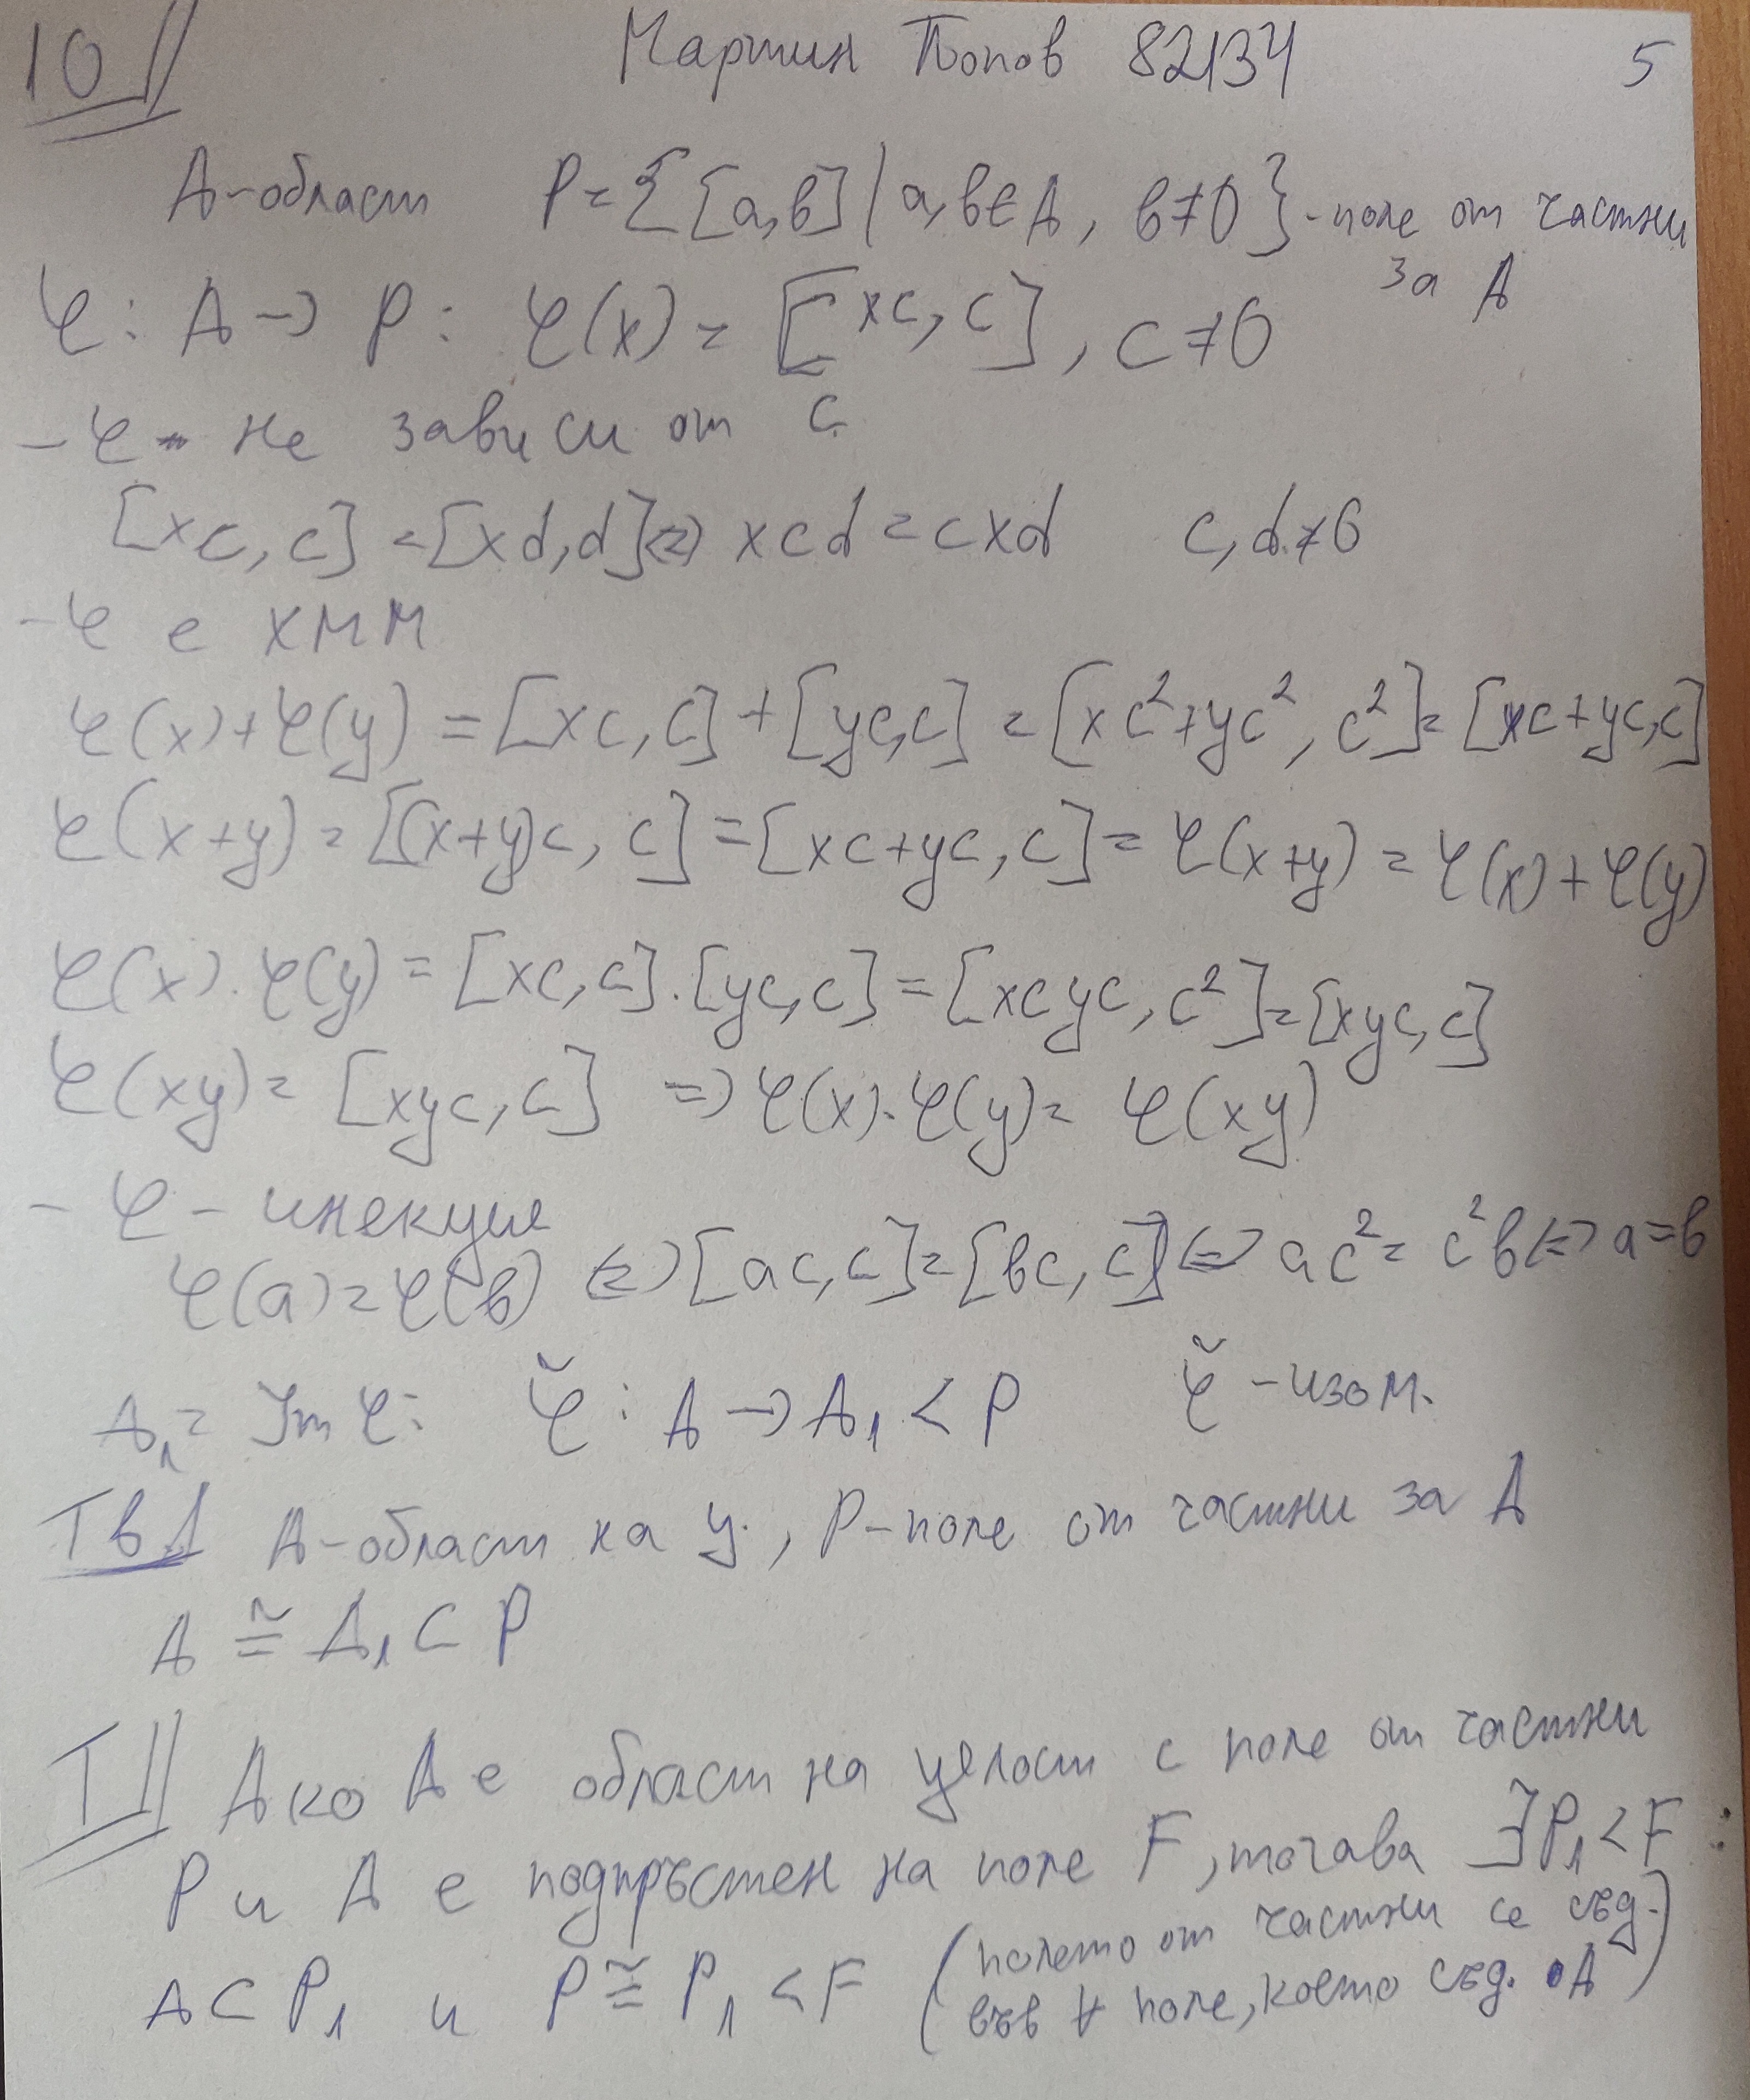 10 Мартин Попов 82134 5
A-област P={[a,b] | a,b∈A, b≠0}-поле от частни
за A
φ: A→P: φ(x)=[xc,c], c≠0
- φ - не зависи от c
[xc,c]=[xd,d]⇔ xcd=cxd c,d≠0
- φ е ХММ
φ(x)+φ(y)=[xc,c]+[yc,c]=[xc²+yc²,c²]=[xc+yc,c]
φ(x+y)=[(x+y)c,c]=[xc+yc,c]=φ(x+y)=φ(x)+φ(y)
φ(x).φ(y)=[xc,c].[yc,c]=[xcyc,c²]=[xyc,c]
φ(xy)=[xyc,c] ⇒φ(x).φ(y)=φ(xy)
- φ - инекция
φ(a)=φ(b) ⇔[ac,c]=[bc,c]⇔ac²=c²b⇔a=b
A₁=Im φ: φ̌: A→A₁<P φ̌ -изом.
Тв1 A-област на ц., P-поле от частни за A
A≅A₁⊂P
T Ако A е област на цялост с поле от частни
P и A е подпръстен на поле F, тогава ∃P₁<F:
A⊂P₁ и P≅P₁<F (полето от частни се съд.
във ∀ поле, което съд. A)